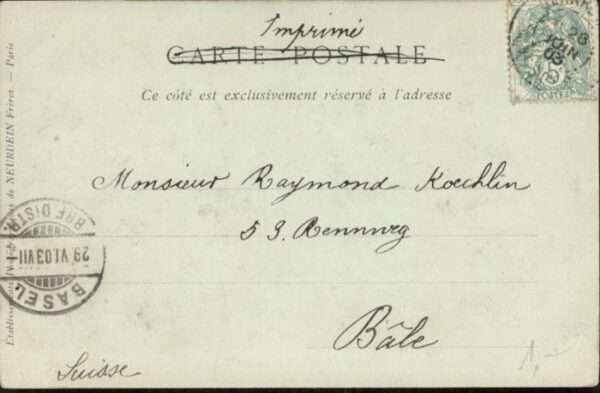 Imprimé
CARTE POSTALE
Ce côté est exclusivement réservé à l'adresse
Monsieur Raymond Koechlin
53. Rennweg
Bâle
Suisse
1,-
de NEURDEIN Frères. — Paris
BASEL
29.VI.03.VII
BRF. DISTR.
26
JUIN
03
POSTES